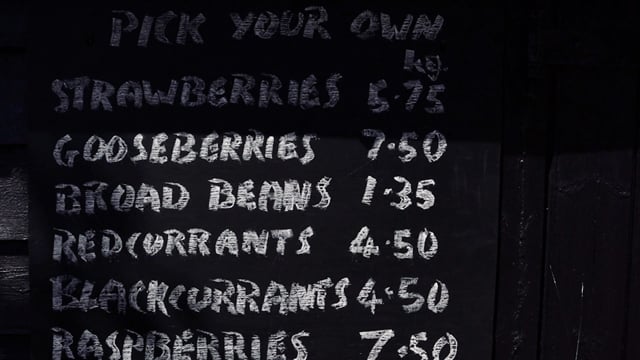 PICK YOUR OWN
kg.
STRAWBERRIES 5.75
GOOSEBERRIES 7.50
BROAD BEANS 1.35
REDCURRANTS 4.50
BLACKCURRANTS 4.50
RASPBERRIES 7.50